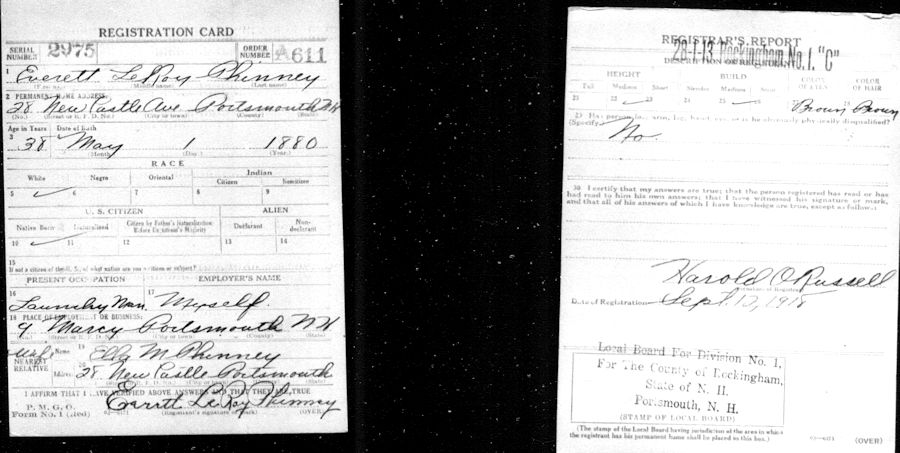 REGISTRATION CARD
SERIAL NUMBER 2975 ORDER NUMBER A611
1 Everett LeRoy Phinney
(First name) (Middle name) (Last name)
2 PERMANENT HOME ADDRESS:
28 New Castle Ave Portsmouth NH
(No.) (Street or R. F. D. No.) (City or town) (County) (State)
Age in Years Date of Birth
3 38 May 1 1880
(Month) (Day) (Year)
RACE
White Negro Oriental Indian
Citizen Noncitizen
5 ✓ 6 7 8 9
U. S. CITIZEN ALIEN
Native Born Naturalized Citizen by Father's Naturalization Before Registrant's Majority Declarant Non-declarant
10 ✓ 11 12 13 14
15
If not a citizen of the U. S., of what nation are you a citizen or subject?
PRESENT OCCUPATION EMPLOYER'S NAME
16 Laundry Man 17 Myself
18 PLACE OF EMPLOYMENT OR BUSINESS:
9 Marcy Portsmouth NH
(No.) (Street or R. F. D. No.) (City or town) (County) (State)
Wife Name 19 Ella M Phinney
NEAREST RELATIVE
Address 28 New Castle Portsmouth
(No.) (Street or R. F. D. No.) (City or town) (State)
I AFFIRM THAT I HAVE VERIFIED ABOVE ANSWERS AND THAT THEY ARE TRUE
P. M. G. O.
Form No. 1 (Red) Everett LeRoy Phinney
(Registrant's signature or mark) (OVER)
REGISTRAR'S REPORT
28-1-13 Rockingham No. 1. "C"
DESCRIPTION OF REGISTRANT
HEIGHT BUILD COLOR OF EYES COLOR OF HAIR
Tall Medium Short Slender Medium Stout
21 22 ✓ 23 24 25 ✓ 26 27 Brown 28 Brown
29 Has person lost arm, leg, hand, eye, or is he obviously physically disqualified?
(Specify) No
30 I certify that my answers are true; that the person registered has read or has
had read to him his own answers; that I have witnessed his signature or mark,
and that all of his answers of which I have knowledge are true, except as follows:
Harold O Russell
(Signature of Registrar)
Date of Registration Sept 12, 1918
Local Board For Division No. 1,
For The County of Rockingham,
State of N. H.
Portsmouth, N. H.
(STAMP OF LOCAL BOARD)
(The stamp of the Local Board having jurisdiction of the area in which
the registrant has his permanent home shall be placed in this box.) (OVER)